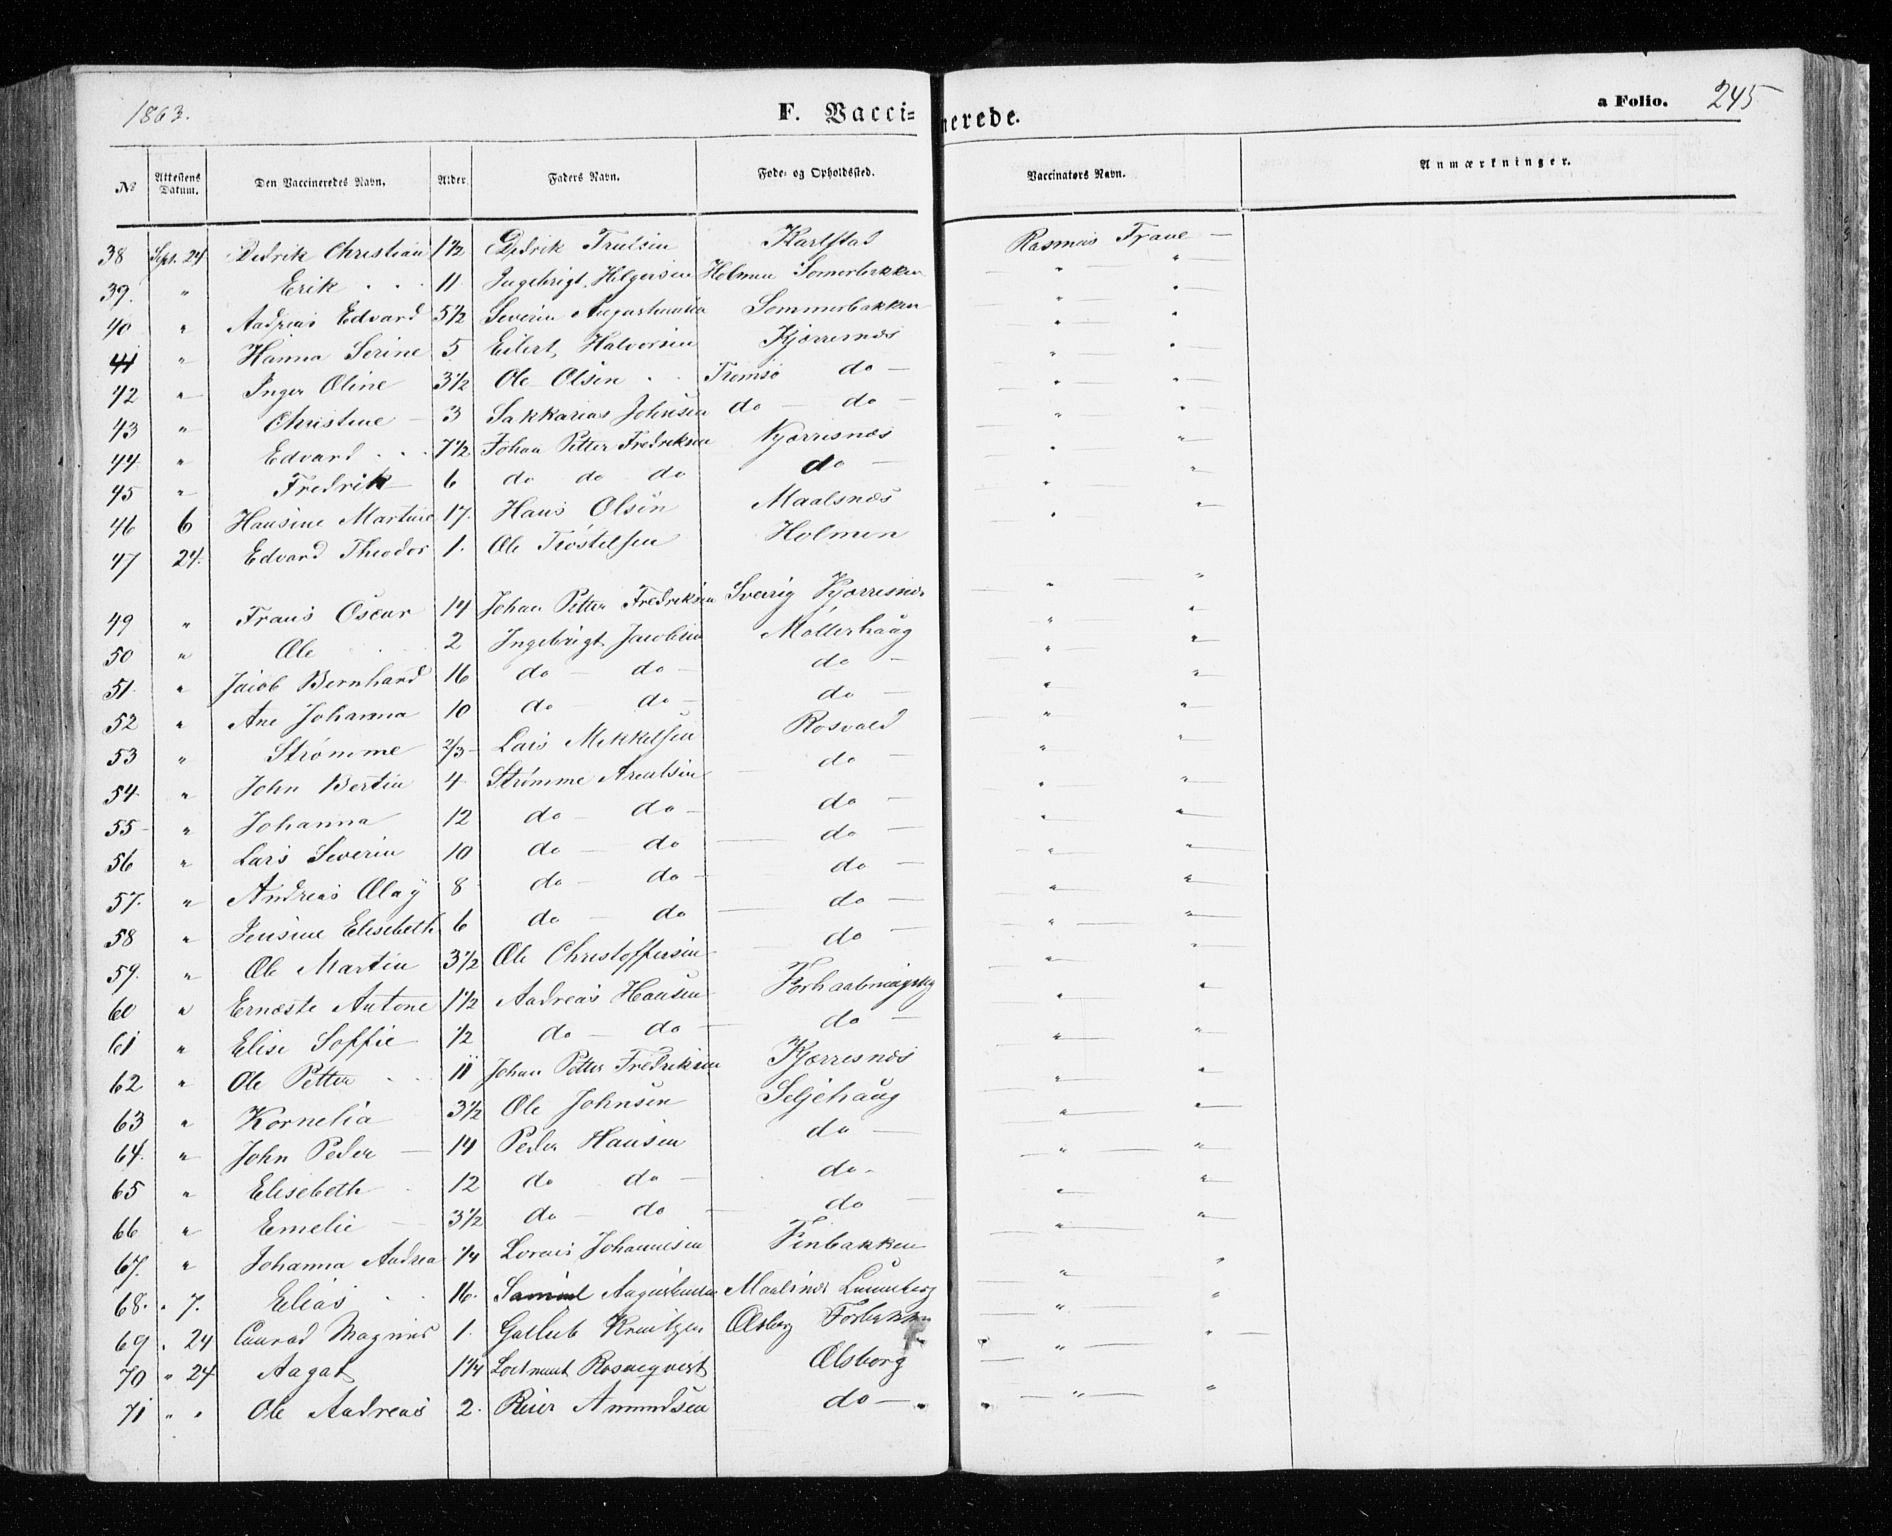 1863.
F. Vaccinerede.
a Folio. 245
№ Attestens Datum. Den Vaccineredes Navn. Alder. Faders Navn. Føde- og Opholdssted. Vaccinators Navn. Anmærkninger.
38 Sept. 24 Didrik Christian 1½ Didrik Trulsen Karlstad Rasmus Trane —
39. " Erik 11 Ingebrigt Holgersen Holmen Somerbakken " — "
40 " Andreas Edvard 5½ Severin Augustinusen Sommerbakken " — "
41 " Hanna Serine 5 Eilert Halvorsen Kjærresnæs " "
42 " Inger Oline 3½ Ole Olsen Tromsø do — " — "
43 " Christine — 3 Sakkarias Johnsen do — do — " — "
44 " Edvard 7½ Johan Petter Fredriksen Kjærresnæs " "
45 " Fredrik 6 do do do do — " "
46 6 Hansine Martine 17. Hans Olsen Maalsnæs " "
47 24. Edvard Theodor 1. Ole Trøstelsen Holmen " "
49 " Frans Oscar 14 Johan Petter Fredriksen Sverig Kjærresnæs " — "
50 " Ole 2 Ingebrigt Jacobsen Møllerhaug " "
51 " Jacob Bernhard 16 do — do — do — " "
52 " Ane Johanna 10 do — do — do — " "
53 " Strømme 2/3 — Lars Mikkelsen Rosvald " "
54. " John Bertin 4 Strømme Arentsen — do — " "
55 " Johanna 12 do — do — do — " "
56 " Lars Severin 10 do — do — do — " "
57. " Andreas Olaÿ 8 do — do — do — " "
58 " Jensine Elisebeth 6 do — do — do — " "
59. " Ole Martin 3½ Ole Christoffersen — do — " "
60 " Ernæste Antone 1½ Andreas Hansen Forhaabningslyg " "
61 " Elise Soffie ½ do — do — do — " "
62 " Ole Petter 11 Johan Petter Fredriksen Kjærresnæs " "
63 " Kornelia 3½ Ole Johnsen Seljehaug " "
64. " John Peder — 14 Peder Hansen do — " — "
65 " Elisebeth 12 do do — do — " "
66 " Emelie — 3½ do — do — do — " "
67. " Johanna Andrea ¼ Johannesen Finbakken " "
68. " 7. Elias 16. Samuel Augustinusen Maalsnæs Lunneborg " "
69 " 24 Conrad Magnus 1. Gotlieb Kreutzer Olsborg Forbakken " — " —
70 " 24 Aagat 1¼ Loitnant Rosneqvist Olsborg " — "
71 " " Ole Andreas 2. Reier Amundsen do — " — "